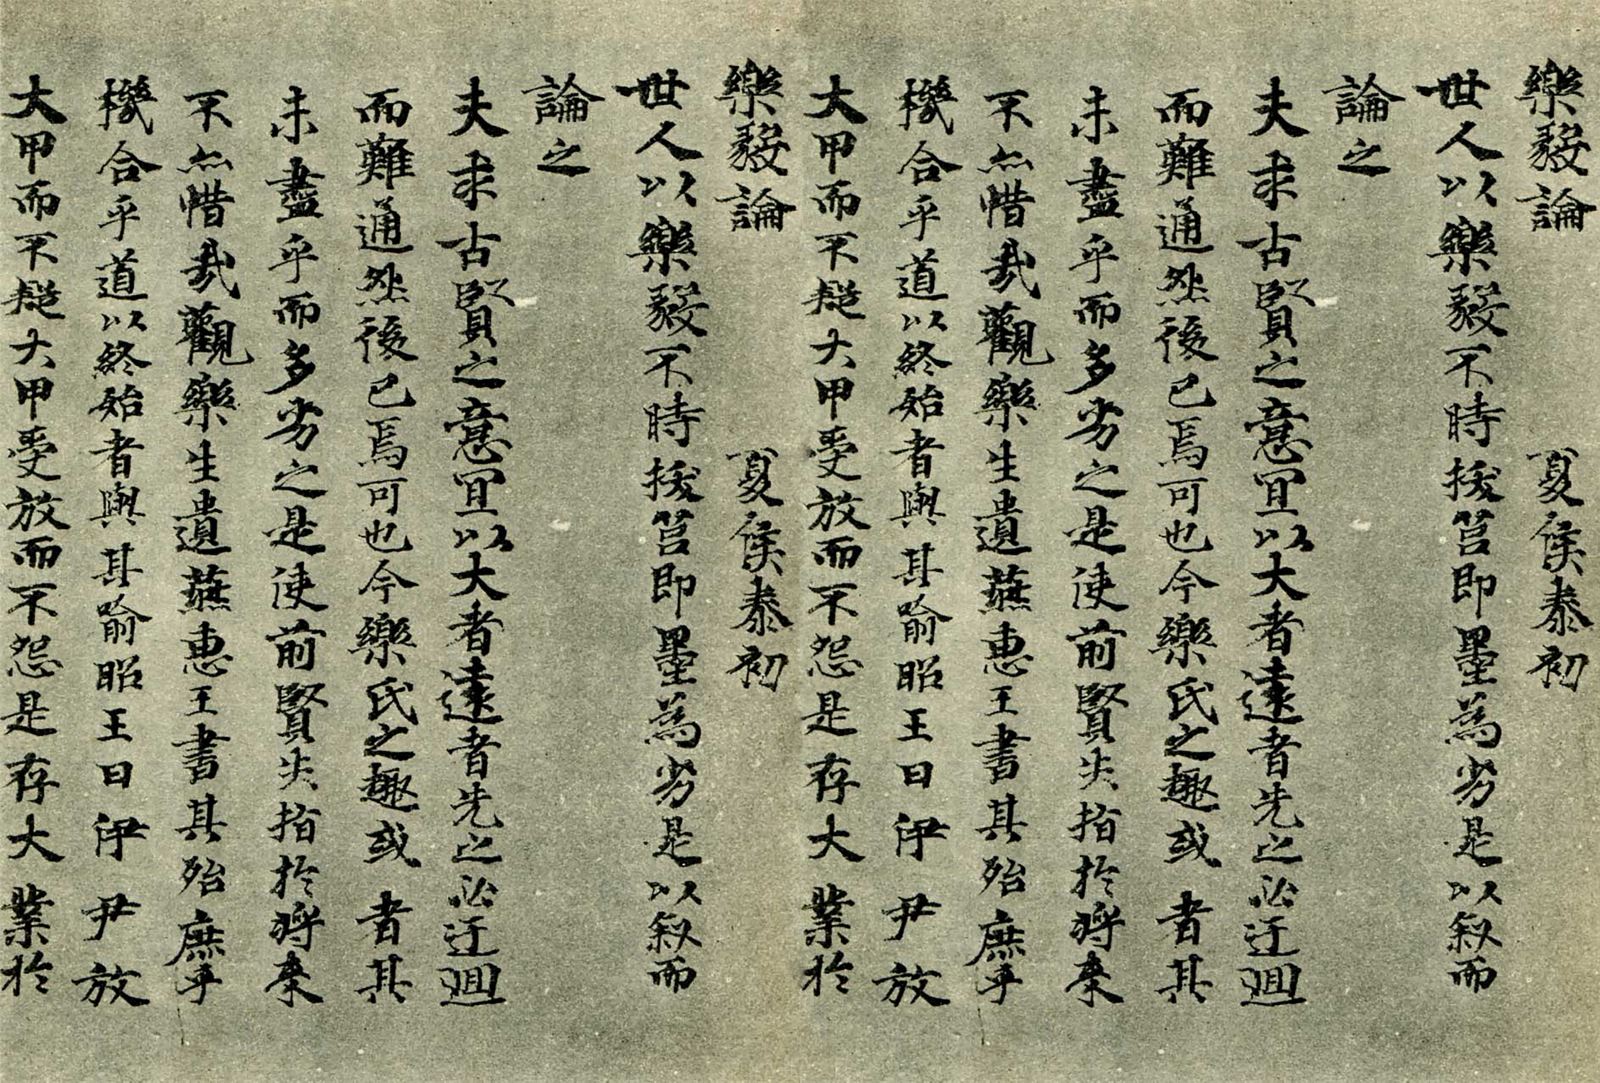 樂毅論 夏侯泰初
世人以樂毅不時拔莒即墨為劣是以叙而
論之
夫求古賢之意宜以大者遠者先之必迂迴
而難通然後已焉可也今樂氏之趣或者其
未盡乎而多劣之是使前賢失指於將來
不亦惜哉觀樂生遺燕惠王書其殆庶乎
機合乎道以終始者與其喻昭王曰伊尹放
大甲而不疑大甲受放而不怨是存大業於
樂毅論 夏侯泰初
世人以樂毅不時拔莒即墨為劣是以叙而
論之
夫求古賢之意宜以大者遠者先之必迂迴
而難通然後已焉可也今樂氏之趣或者其
未盡乎而多劣之是使前賢失指於將來
不亦惜哉觀樂生遺燕惠王書其殆庶乎
機合乎道以終始者與其喻昭王曰伊尹放
大甲而不疑大甲受放而不怨是存大業於